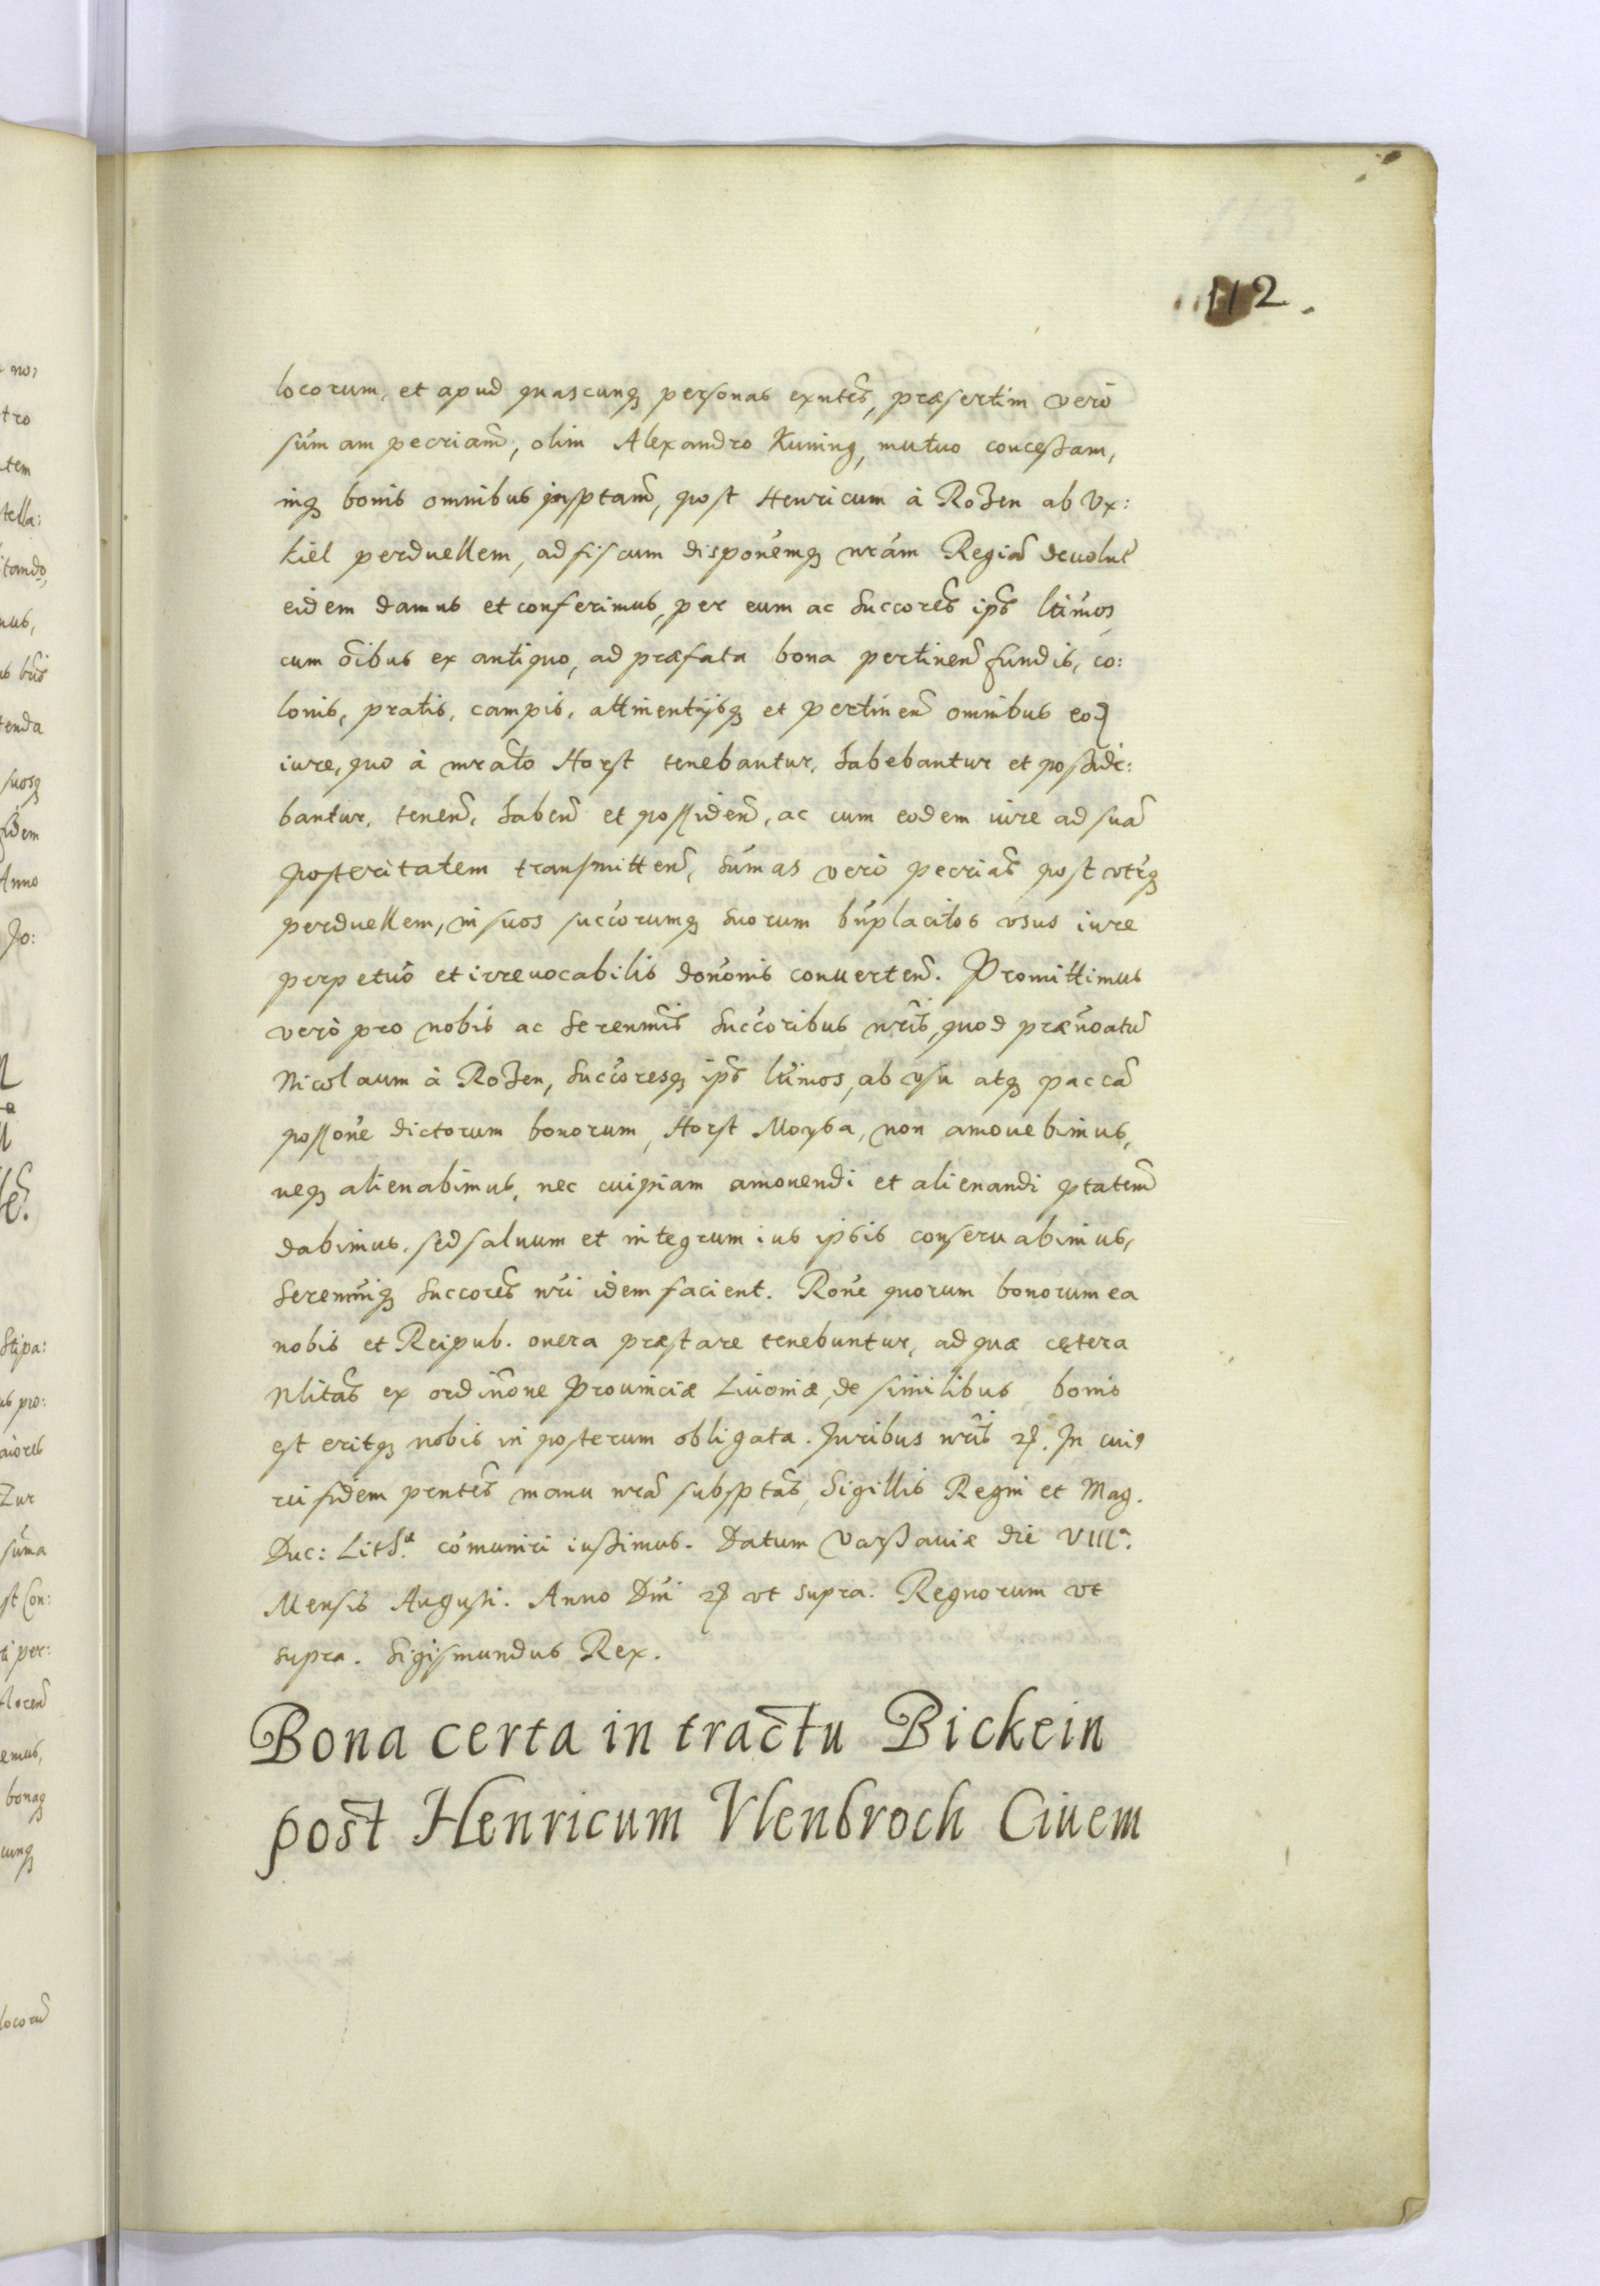 112.
locorum, et apud quascunq personas exntes, præsertim verò
sumam pecriam, olim Alexandro Kuning, mutuo concessam,
inq bonis omnibus insptam, post Henricum à Rosen ab Vx:
kiel perduellem, ad fiscum disponemq nram Regia devolut
eidem damus et conferimus, per eum ac Succores ips ltimos
cum oibus ex antiquo, ad præfata bona pertinen fundis, co:
lonis, pratis, campis, attinentijsq et pertinen omnibus eod
iure, quo à mrato Horst tenebantur, habebantur et posside:
bantur, tenen, haben et possiden, ac cum eodem iure ad sua
posteritatem transmitten, sumas verò pecrias post utrq
perduellem, in suos succorumq suorum bnplacitos usus iure
perpetuo et irreuocabilis dononis conuerten. Promittimus
verò pro nobis ac Serenmis Succoribus nris, quod prænoatu
Nicolaum à Rosen, Succoresq ips ltimos, ab usu atq pacca
possone dictorum bonorum, Horst Moysa, non amouebimus,
neq alienabimus, nec cuipiam amouendi et alienandi ptatem
dabimus, sed saluum et integrum ius ipsis conseruabimus,
Serenmiq Succores nri idem facient. Rone quorum bonorum ea
nobis et Reipub. onera præstare tenebuntur, ad quæ cętera
Nlitas ex ordinone Prouinciæ Liuoniæ, de similibus bonis
est eritq nobis in posterum obligata. Juribus nris &. In cuiꝰ
rei fidem pntes manu nra subsptas, Sigillis Regni et Mag.
Duc: Lithæ. comuniri iussimus. Datum Varssauiæ die VIIIa.
Mensis Augusti. Anno Dni & vt supra. Regnorum vt
supra. Sigismundus Rex.
Bona certa in tractu Bickein
post Henricum Vlenbroch Ciuem